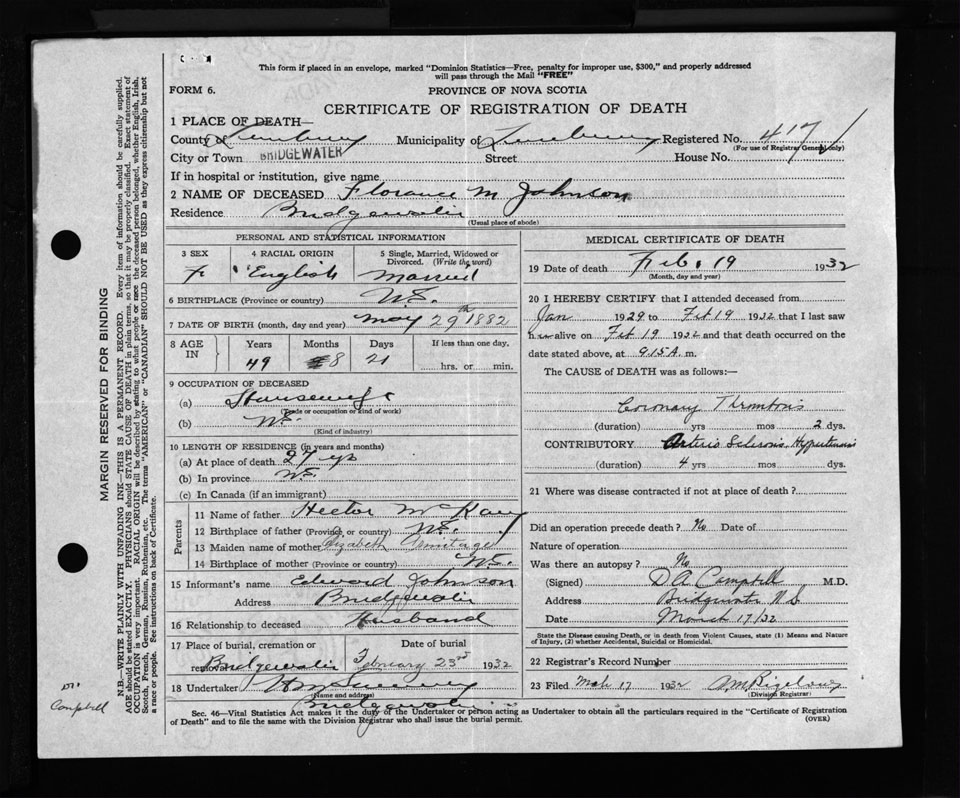 This form if placed in an envelope, marked "Dominion Statistics—Free, penalty for improper use, $300," and properly addressed
will pass through the Mail "FREE"
FORM 6.
PROVINCE OF NOVA SCOTIA
CERTIFICATE OF REGISTRATION OF DEATH
1 PLACE OF DEATH—
County of Lunenburg Municipality of Lunenburg Registered No. 417
(For use of Registrar General only)
City or Town BRIDGEWATER Street House No.
If in hospital or institution, give name
2 NAME OF DECEASED Florance M Johnson
Residence Bridgewater
(Usual place of abode)
PERSONAL AND STATISTICAL INFORMATION
3 SEX 4 RACIAL ORIGIN 5 Single, Married, Widowed or Divorced. (Write the word)
F English Married
6 BIRTHPLACE (Province or country) N.S.
7 DATE OF BIRTH (month, day and year) May 29th 1882
8 AGE IN Years Months Days If less than one day.
49 8 21 hrs. or min.
9 OCCUPATION OF DECEASED
(a) Housewife
(Trade or occupation or kind of work)
(b) N.S.
(Kind of industry)
10 LENGTH OF RESIDENCE (in years and months)
(a) At place of death 27 yrs
(b) In province N.S.
(c) In Canada (if an immigrant)
Parents
11 Name of father Hector McKay
12 Birthplace of father (Province or country) N.S.
13 Maiden name of mother Elizabeth Armitage
14 Birthplace of mother (Province or country) N.S.
15 Informant's name Edward Johnson
Address Bridgewater
16 Relationship to deceased Husband
17 Place of burial, cremation or removal Date of burial
Bridgewater February 23rd 1932
18 Undertaker
(Name and address)
Bridgewater
MEDICAL CERTIFICATE OF DEATH
19 Date of death Feb. 19 1932
(Month, day and year)
20 I HEREBY CERTIFY that I attended deceased from
Jan 1929 to Feb 19 1932 that I last saw
her alive on Feb 19 1932 and that death occurred on
date stated above, at 9.15 A. m.
The CAUSE of DEATH was as follows:—
Coronary Thrombosis
(duration) yrs mos 2 dys.
CONTRIBUTORY Arterio Sclerosis Hypertension
(duration) 4 yrs mos dys.
21 Where was disease contracted if not at place of death?
Did an operation precede death? No Date of
Nature of operation
Was there an autopsy? No
(Signed) D A Campbell M.D.
Address Bridgewater N.S.
Date March 17/32
State the Disease causing Death, or in death from Violent Causes, state (1) Means and Nature
of Injury, (2) whether Accidental, Suicidal or Homicidal.
22 Registrar's Record Number
23 Filed Mch 17 1932
(Division Registrar)
Sec. 46—Vital Statistics Act makes it the duty of the Undertaker or person acting as Undertaker to obtain all the particulars required in the "Certificate of Registration
of Death" and to file the same with the Division Registrar who shall issue the burial permit.
(OVER)
MARGIN RESERVED FOR BINDING
N.B.—WRITE PLAINLY WITH UNFADING INK—THIS IS A PERMANENT RECORD. Every item of information should be carefully supplied.
AGE should be stated EXACTLY. PHYSICIANS should STATE CAUSE OF DEATH in plain terms, so that it may be properly classified. Exact statement of
OCCUPATION is very important. RACIAL ORIGIN will be described by stating to what people or race the deceased person belonged, whether English, Irish,
Scotch, French, German, Russian, Ruthenian, etc. The terms "AMERICAN" or "CANADIAN" SHOULD NOT BE USED as they express citizenship but not
a race or people. See instructions on back of Certificate.
Dr.
Campbell